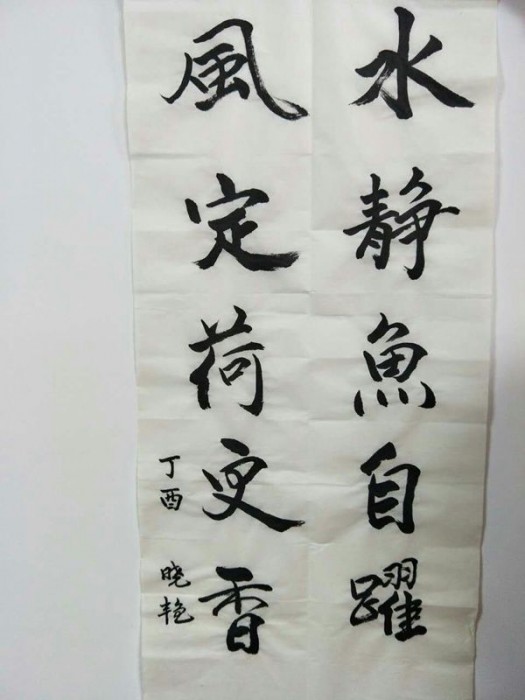 水静魚自躍
風定荷更香
丁酉 晓艳